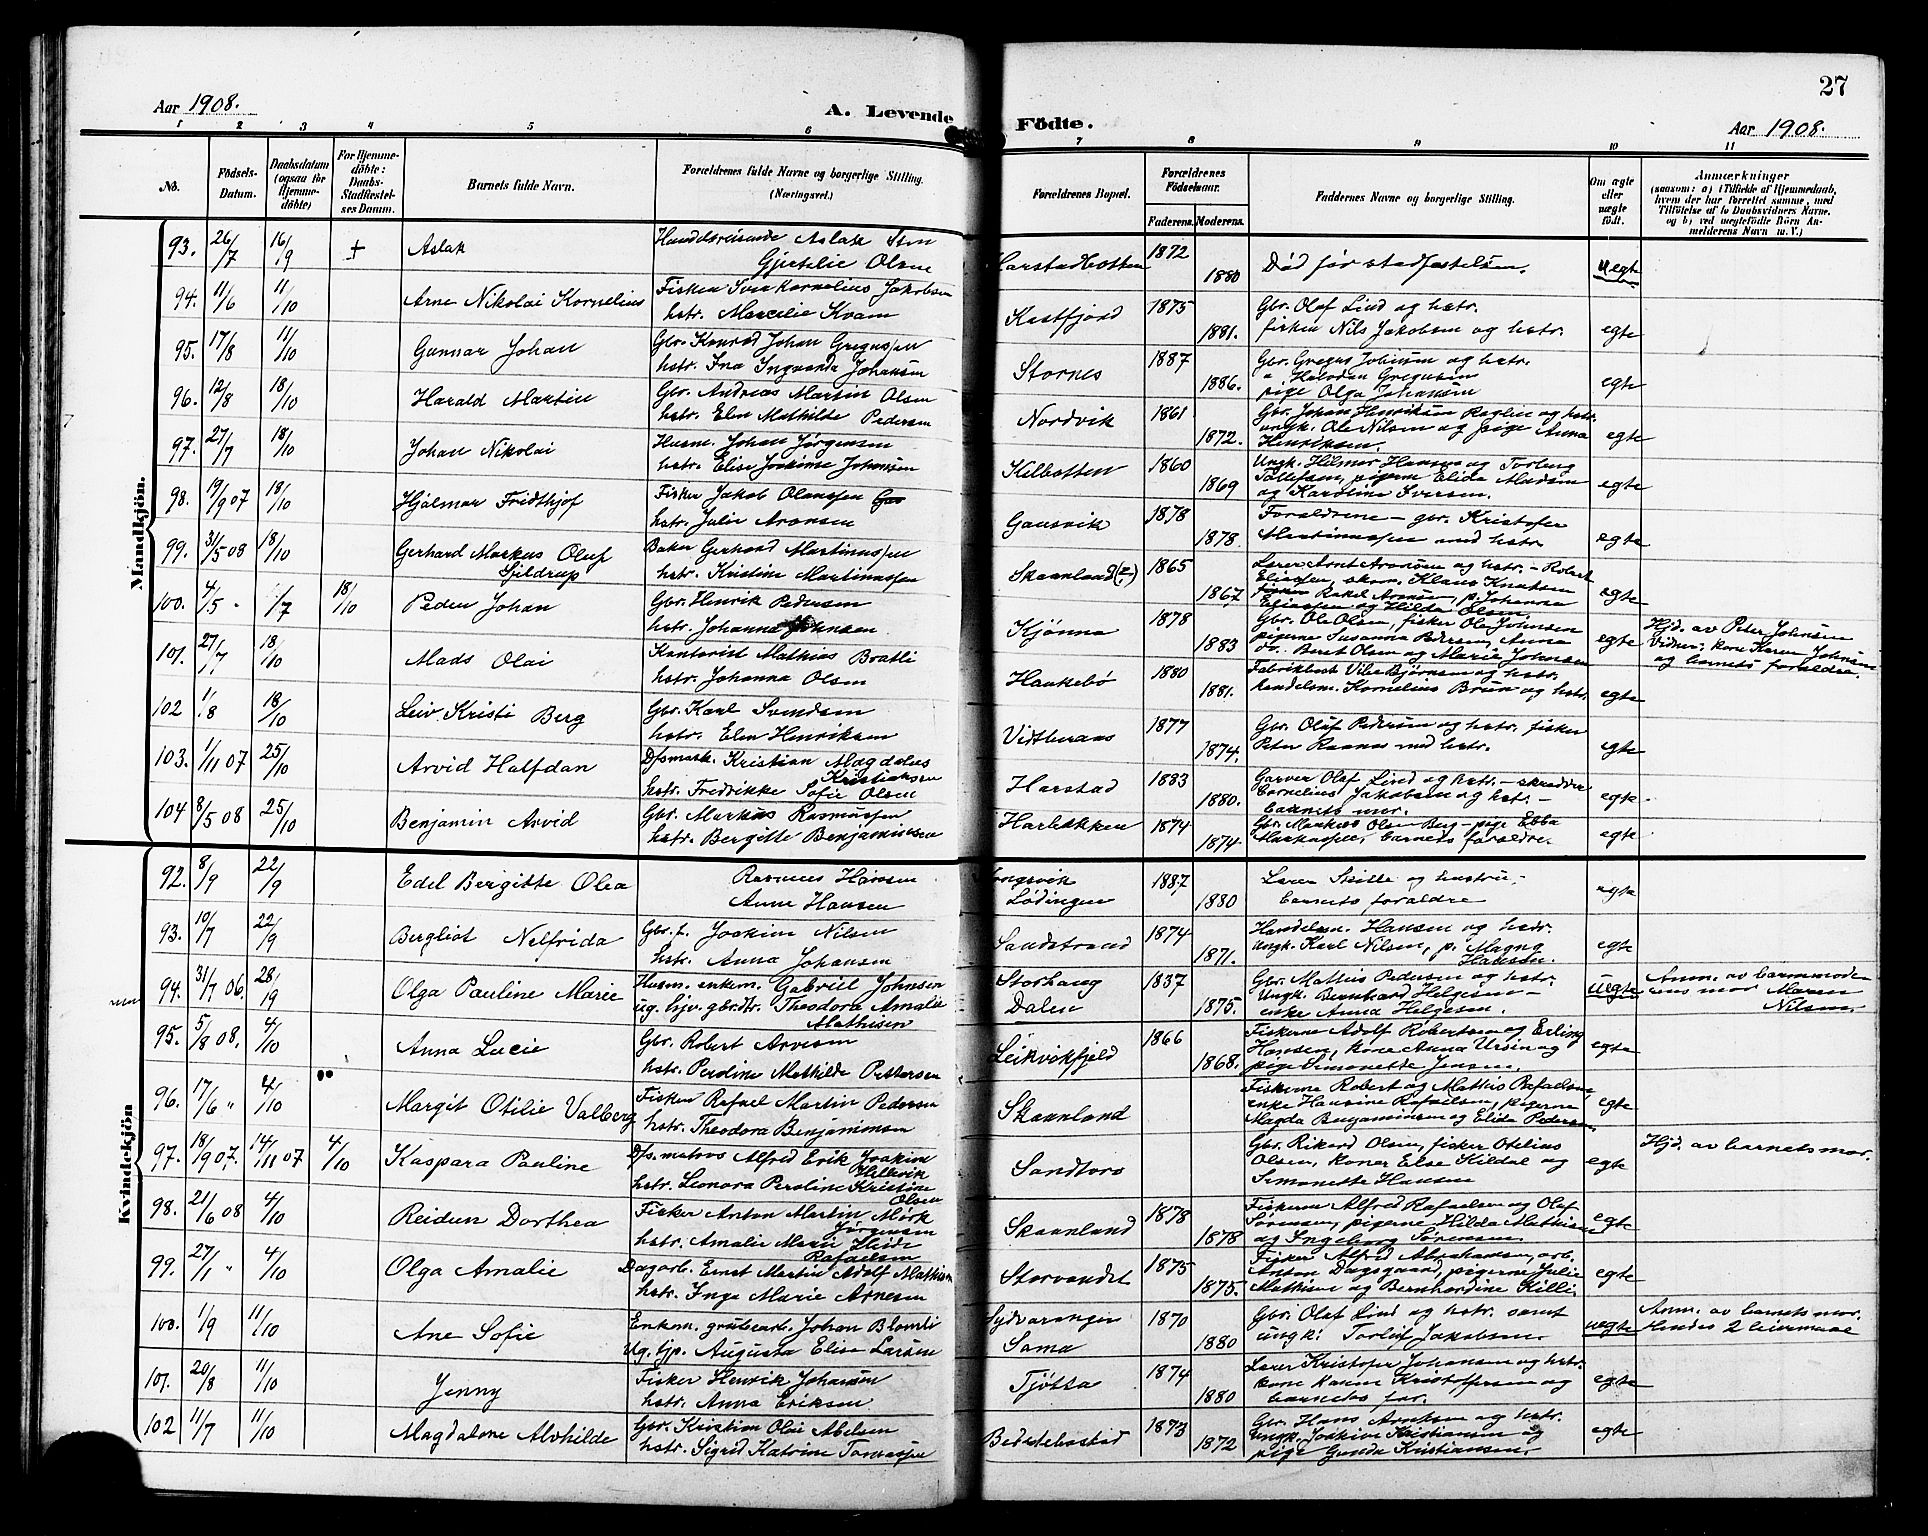 27
Aar 1908.
A. Levende
Fødte.
Aar 1908.
1 2 3 4 5 6 7 8 9 10 11
No.
Fødsels-
Datum.
Daabsdatum
(ogsaa for
Hjemme-
døbte)
For Hjemme-
døbte:
Daabs-
Stadfæstel-
ses Datum.
Barnets fulde Navn.
Forældrenes fulde Navne og borgerlige Stilling.
(Næringsvei.)
Forældrenes Bopæl.
Forældrenes
Fødselsaar.
Faderens. Moderens.
Faddernes Navne og borgerlige Stilling.
Om ægte
eller
uægte
født.
Anmærkninger
(saasom: a) i Tilfælde af Hjemmedaab,
hvem der har forrettet samme, med
Tilføielse af to Daabsvidners Navne,
og b) ved uegtefødte Børn An-
melderens Navn m. V.)
Mandkjön.
93. 26/7 16/9 + Aslak
Handelsreisende Aslak Sten
Gjertelie Olsen
Harstadbotten 1872 1880
Død før stadfæstelsen. uegte
94. 11/6 11/10 Arne Nikolai Kornelius
Fisker Kornelius Jakobsen
hstr. Marselie Kvam
Kastfjord 1875 1881.
Gbr. Olaf Lind og hstr.
fisker Nils Jakobsen og hstr. egte
95. 17/8 11/10 Gunnar Johan
Gbr. Konrad Johan Gregussen
hstr. Ina Ingvarda Johansen
Stornes 1887 1886.
Gbr. Gregus Johnsen og hstr.
" Halvdan Gregusen
pige Olga Johansen egte
96. 12/8 18/10 Harald Martin
Gbr. Andreas Martin Olsen
hstr. Elen Mathilde Pedersen
Nordvik 1861 1872.
Gbr. Johan Henriksen og hstr.
ungk. Ole Nilsen og pige Anna
Henriksen. egte
97. 27/7 18/10 Johan Nikolai
Husm. Johan Jørgensen
hstr. Elise Joakime Johansen
Kilbotten 1860 1869
Ungk. Hilmar Hansen og Torberg
Tollefsen, pigerne Elida Madsen
og Karoline Iversen. egte
98. 19/9 07 18/10 Hjalmar Fridthjof
Fisker Jakob Olaussen
hstr. Julie Aronsen
Gausvik 1878 1878
Forældrene – gbr. Kristofer
Martinussen med hstr. egte
99. 31/5 08 18/10 Gerhard Markus Oluf
Sjildrup
Baker Gerhard Martinussen
hstr. Kristine Martinussen
Skaanland 1865 1867
Lærer Arnt Aronsen og hstr. – Robert
Eliassen, skom. Klaus Knutsen
Rakel Aronsen, p. Johanna
Eliassen og Hilda Olsen egte
100. 4/5 " /7 18/10 Peder Johan
Gbr. Henrik Pedersen
hstr. Johanna Johnsen
Kjønna 1878 1883
Gbr. Ole Olsen, fisker Ole Johnsen
pigerne Susanna Berersen, Anna
do. Beret Olsen og Marie Johnsen egte
Hjd. av Peter Johnsen
Vidner: kone Karen Johnsen
og barnets forældre.
101. 27/7 18/10 Mads Olai
Kontorist Mathias Boatli
hstr. Johanna Olsen
Haukebø 1880 1881.
Fabrikbest. Vibe Bjørnsen og hstr.
handelsm. Kornelius Brun og hstr. egte
102 1/8 18/10 Leiv Kristi Berg
Gbr. Karl Svendsen
hstr. Elen Henriksen
1877 1874.
Gbr. Oluf Pedersen og hstr. fisker
Peter Raanes med hstr. egte
103. 1/11 07 25/10 Arvid Halfdan
Dfsmask. Kristian Magdalus
Kristiansen
hstr. Fredrikke Sofie Olsen
Harstad 1883 1880.
Garver Olaf Lind og hstr. – skrædder
Cornelius Jakobsen og hstr. –
barnets mor. egte
104 8/5 08 25/10 Benjamin Arvid
Gbr. Markus Rasmussen
hstr. Bergitte Benjaminsen
Harbækken 1874 1874.
Gbr. Markus Olsen Berg – pige Ebba
Markussen, barnets forældre. egte
Kvindekjön
92. 8/9 22/9 Edel Bergitte Olea
Rasmus Hansen
Anne Hansen
Lødingen 1887 1880
Lærer Skille og hustru –
barnets forældre egte
93. 10/7 22/9 Bergliot Nelfrida
Gbr. f. Joakim Nilsen
hstr. Anna Johansen
Sandstrand 1874 1871.
Handelsm. Hansen og hstr.
ungk. Karl Nilsen, p. Magna
Hansen. egte
94. 31/7 06. 28/9 Olga Pauline Marie
Husm. enkem. Gabriel Johnsen
ug. hjv. gbr.dtr. Theodora Amalie
Mathisen
Storhaug
Dalen 1837 1875.
Gbr. Mathis Pedersen og hstr.
Ungk. Bernhard Helgesen –
enke Anna Helgesen. uegte
Anm. av barnemode
rens mor Maren
Nilsen.
95. 5/8 08. 4/10 Anna Lucie
Gbr. Robert Arvesen
hstr. Perdine Mathilde Pettersen
Leikvikfjeld 1866 1868.
Fiskerne Adolf Robertsen og Erling
Hansen, kone Anna Ursin og
pige Simonette Jensen. egte
96. 17/6 " 4/10 Margit Otilie Valberg
Fisker Rafael Martin Pedersen
hstr. Theodora Benjaminsen
Skaanland
Fiskerne Robert og Mathis Rafaelsen,
enke Hansine Rafaelsen, pigerne
Magda Benjaminsen og Elide Pedersen egte
97. 18/9 07. 14/11 07 4/10 Kaspara Pauline
Dfs.matros Alfred Erik Joakim
Hellevik
hstr. Leonora Peroline Kristine
Olsen
Sandtorv
Gbr. Rikard Olsen, fisker Otelius
Olsen, koner Else Kildal og
Simonette Hansen egte
Hjd. av barnets mor.
98. 21/6 08 4/10 Reidun Dorthea
Fisker Anton Martin Mørk
Jørgensen
hstr. Amalie Marie Heide
Rafaelsen
Skaanland 1878 1878
Fiskerne Alfred Rafaelsen og Olaf
Sørensen, pigerne Hilda Mathisen
og Ingeborg Sørensen. egte
99. 27/1 " 4/10 Olga Amalie
Dagarb. Ernst Martin Adolf Mathisen
hstr. Inga Marie Arnesen
Storvandet 1875 1875.
Fisker Alfred Abrahamsen, arb.
Anton Dagsgaard, pigerne Julie
Mathisen og Bernhardine Killi. egte
100. 1/9 11/10 Ane Sofie
Enkem. grubearb. Johan Blomli
Ug. hjp. Augusta Elise Larsen
Sydvaranger
Sama 1870 1880
Gbr. Olaf Lind og hstr. samt
ungk: Torleif Jakobsen. uegte
Anm. av barnets mor.
Hendes 2 leiermaal
101. 20/8 11/10 Jenny
Fisker Henrik Johansen
hstr. Anna Eriksen
Tjøtta 1874 1880
Lærer Kristofer Johansen og hstr.
kone Hanne Kristoffersen og
barnets far. egte
102 11/7 11/10 Magdalone Alvhilde
Gbr. Kristian Olai Abelsen
hstr. Sigrid Katrine Tomassen
1873 1872
Gbr. Hans Arntsen og hstr.
ungk. Joakim Kristiansen og
pige Gunda Kristiansen. egte